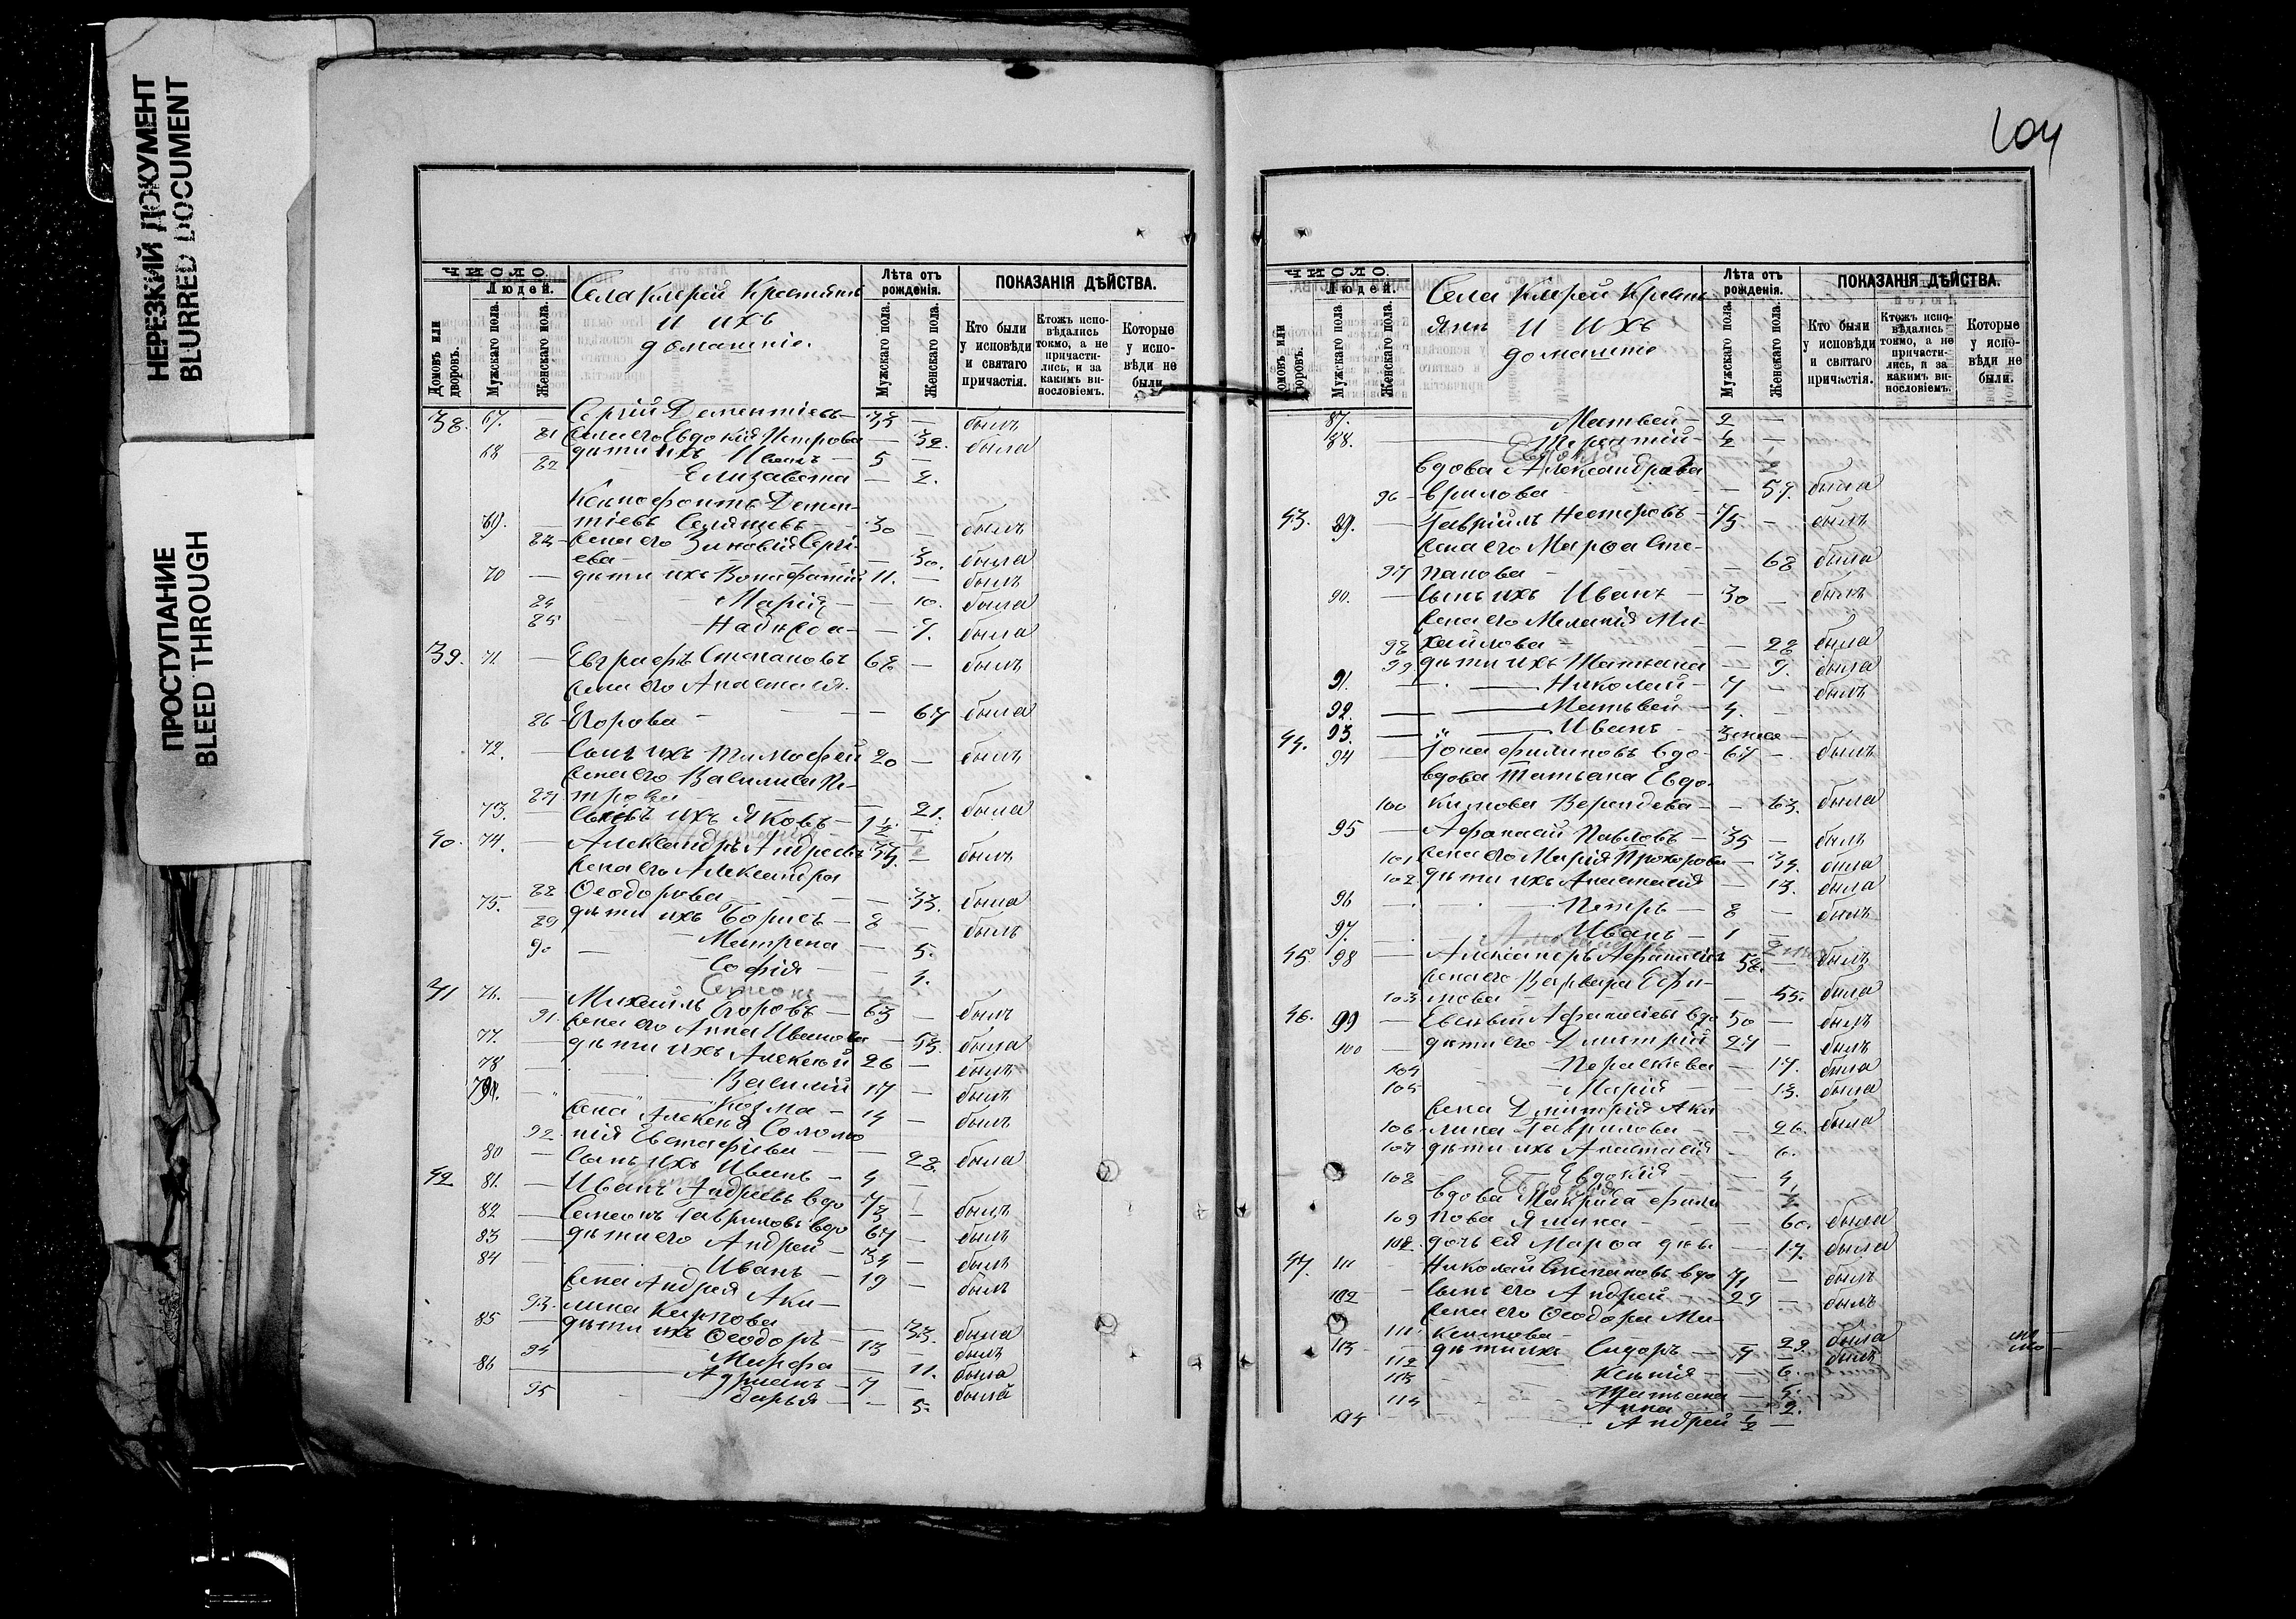 НЕРЕЗКИЙ ДОКУМЕНТ
BLURRED DOCUMENT
ПРОСТУПАНИЕ
BLEED THROUGH
ЧИСЛО.
Людей.
Домовъ или дворовъ.
Мужскаго пола.
Женскаго пола.
Села Крестьяне
и ихъ
домашніе.
Лѣта отъ рожденія.
Мужскаго пола.
Женскаго пола.
ПОКАЗАНІЯ ДѢЙСТВА.
Кто были у исповѣди и святаго причастія.
Ктожъ исповѣдались токмо, а не причастились, и за какимъ винословіемъ.
Которые у исповѣди не были.
38. 67. — Сергій Дементіевъ — 35 — былъ
81 Жена его Евдокія Петрова — 32. была
68 дѣти ихъ Иванъ — 5 —
82 Елизавета — 2.
Ксенофонтъ Демен-
69. — тіевъ — 30 — былъ
83 Жена его Зиновія Сергі-
ева — — 30. была
70 — дѣти ихъ Вонифатій 11. — былъ
84 Марія — — 10. была
85 Надежда — — 7. была
39. 71. — Евграфъ Степановъ 68 — былъ
Жена его Анастасія
86 Егорова — — 67 была
72. — Сынъ ихъ Тимофей 20 — былъ
Жена его Василиса Пе-
87 трова — 21. была
73. — Сынъ ихъ Яковъ — 1½ —
40. 74. — Александръ Андреевъ 34 — былъ
Жена его Александра
88 Ѳеодорова — — 33. была
75. дѣти ихъ Борисъ — 8 — былъ
89 Матрена — 5.
90 — Софія — — 1.
Семенъ
41 76. — Михаилъ Егоровъ — 63 — былъ
91. Жена его Анна Иванова — 53. была
77. — дѣти ихъ Алексей 26 — былъ
78 — Василій 17 — былъ
79. — Козма — 14 — былъ
Жена Алексея Соломо
92 нія Евстафіева — — 28. была
80 — Сынъ ихъ Иванъ — 4 —
42 81. — Иванъ Андреевъ вдо 73 — былъ
82 — Семенъ Гавриловъ вдо 67 — былъ
83 — дѣти его Андрей — 34 — былъ
84 — Иванъ — 19 — былъ
Жена Андрея Аку-
93. лина Карпова — 33. была
85 — дѣти ихъ Ѳеодоръ — 13 — былъ
94 Марфа — 11. была
86 Адріанъ — 7 — былъ
95 Дарья — — 5.
104
ЧИСЛО.
Людей.
Домовъ или дворовъ.
Мужскаго пола.
Женскаго пола.
Села Кресть
яне и ихъ
домашніе
Лѣта отъ рожденія.
Мужскаго пола.
Женскаго пола.
ПОКАЗАНІЯ ДѢЙСТВА.
Кто были у исповѣди и святаго причастія.
Ктожъ исповѣдались токмо, а не причастились, и за какимъ винословіемъ.
Которые у исповѣди не были.
87. Матвей — 2 —
88. Терентій — ½ —
Евдокія
вдова Александра Га
96 — врилова — — 59. была
43. 89. — Гавріилъ Нестеровъ — 75 — былъ
Жена его Марѳа Сте-
97 панова — — 68 была
90. — Сынъ ихъ Иванъ — 30 — былъ
Жена его Меланія Ми-
98 хайлова — — 28 была
99 дѣти ихъ Татьяна — 9. была
91. — Николай — 7 — былъ
92. — Матвей — 4. —
93. — Иванъ —
44. 94 — Іона Филиповъ вдо- 67 — былъ
вдова Татьяна Евдо-
100 кимова — — 63. была
95 — Афанасій Павловъ — 35 — былъ
101 Жена его Марія Прохорова — 34. была
102 дѣти ихъ Анастасія — 13. была
96 — Петръ — 8 — былъ
97. — Иванъ — 1 —
45 98 — Александръ Афанасіевъ 58. — былъ
Жена его Варвара Ефи-
103 мова — — 55. была
46. 99 — Евсевій Афанасіевъ вдо 50 — былъ
100 — дѣти его Дмитрій 27 — былъ
104 Пераскева — 17. была
105 Марія — 13. была
Жена Дмитрія Аку
106 лина Гаврилова — — 26. была
107 дѣти ихъ Анастасія — 6.
108 Евдокія — — 4.
вдова Макрида Фили
109 пова — — 60. была
дочь ея Марѳа дѣв — 19. была
47. — Николай Степановъ вдо 71 — былъ
102 — сынъ его Андрей — 29 — былъ
Жена его Ѳеодора Ми-
111. китова — — 29. была
113 — дѣти ихъ Сидоръ — 9 — былъ
112 Ксенія — — 6.
113 Татьяна — 5.
114 Анна — 2.
Андрей ½ —